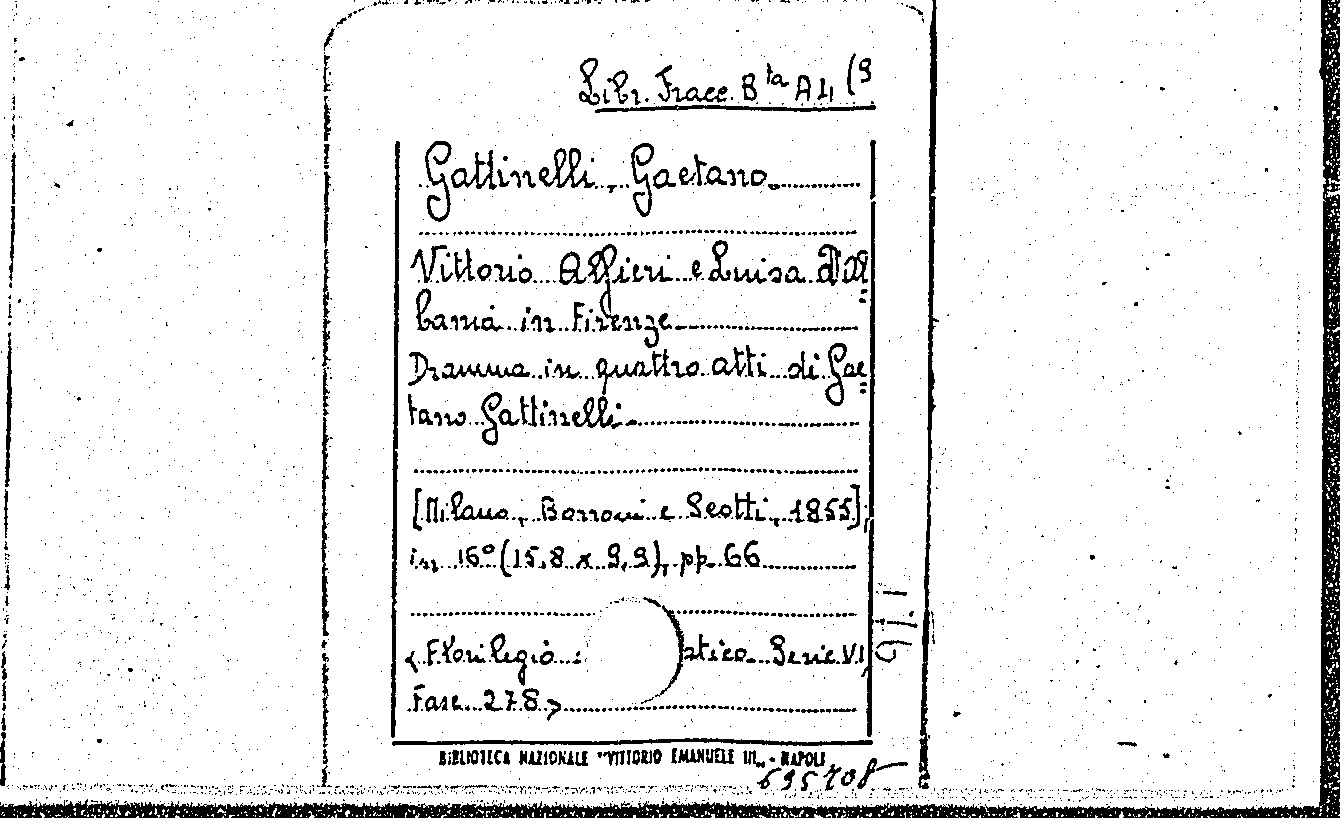 Libr. Fracc. B ta A 4 (9
Gattinelli, Gaetano.
Vittorio Alfieri e Luisa d'Al=
bania in Firenze
Dramma in quattro atti di Gae=
tano Gattinelli.
[Milano, Borroni e Scotti, 1855];
in 16° (15,8 x 9,9), pp. 66
< Florilegio atico. Serie VI,
Fasc. 278 >
BIBLIOTECA NAZIONALE "VITTORIO EMANUELE III" - NAPOLI
695708